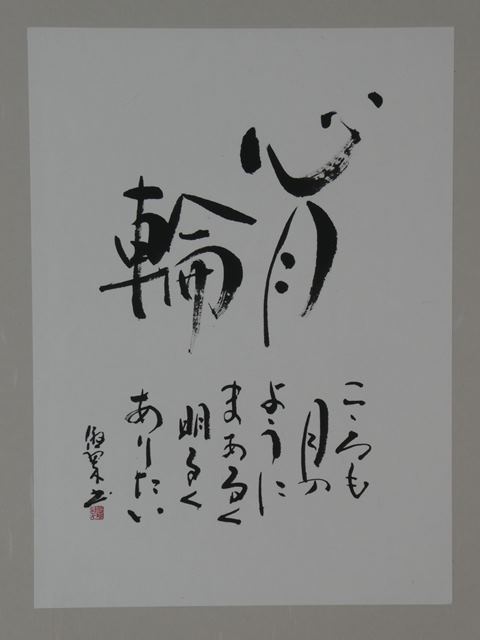 心月
輪
こゝろも
月の
ように
まあるく
明るく
ありたい
書